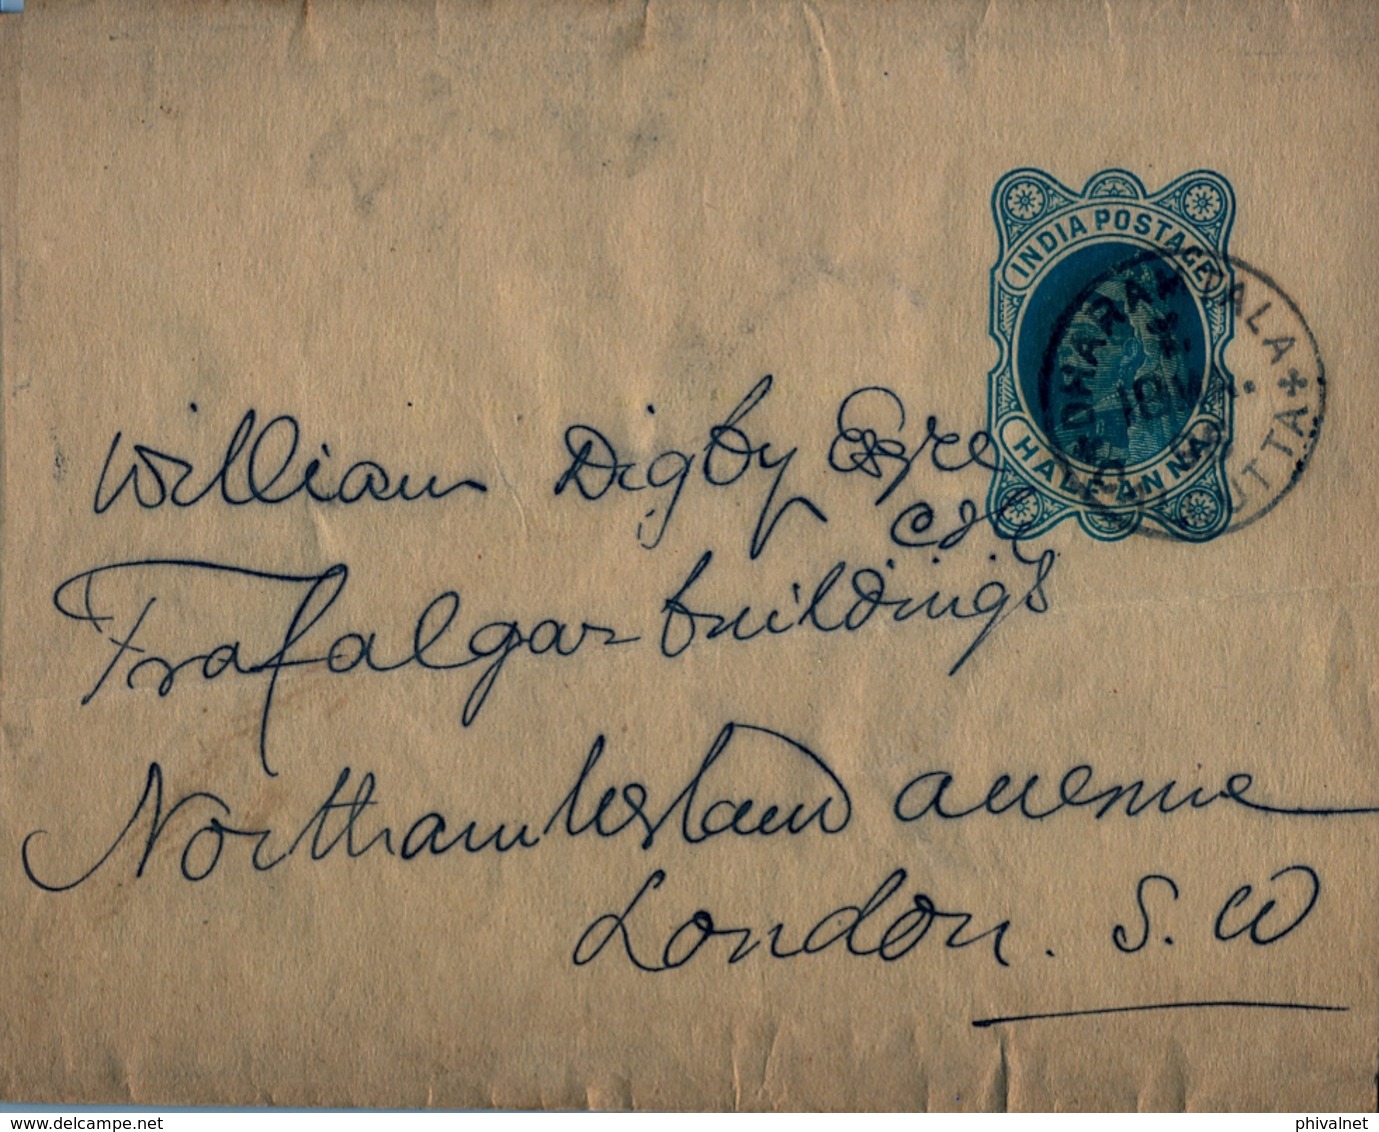 INDIA POSTAGE
HALF ANNA
DHARAMTALA
CALCUTTA
18
William Digby Esqre
C.I.E.
Trafalgar buildings
Northumberland avenue
London. S. W
phivalnet